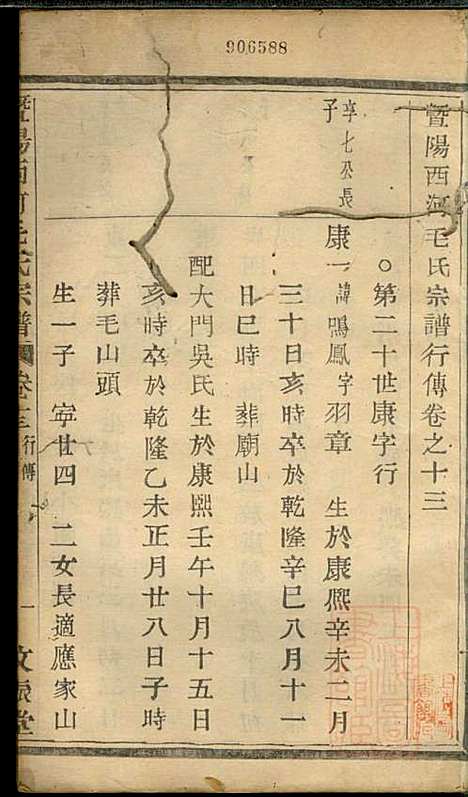 906588
暨陽西河毛氏宗譜行傳卷之十三
○第二十世康字行
享七公長子
康一 諱鳴鳳字羽章 生於康熙辛未二月
三十日亥時卒於乾隆辛巳八月十一
日巳時 葬廟山
配大門吳氏生於康熙壬午十月十五日
亥時卒於乾隆乙未正月廿八日子時
葬毛山頭
生一子 寕廿四 二女長適應家山
暨陽西河毛氏宗譜 卷十三 行傳 一